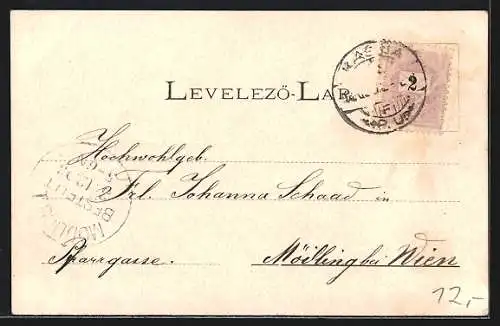 LEVELEZŐ-LAP
KASSA
2
Hochwohlgeb.
Frl. Johanna Schaad in
Pfarrgasse. Mödling bei Wien
MÖDLING
BESTELLT
12,-